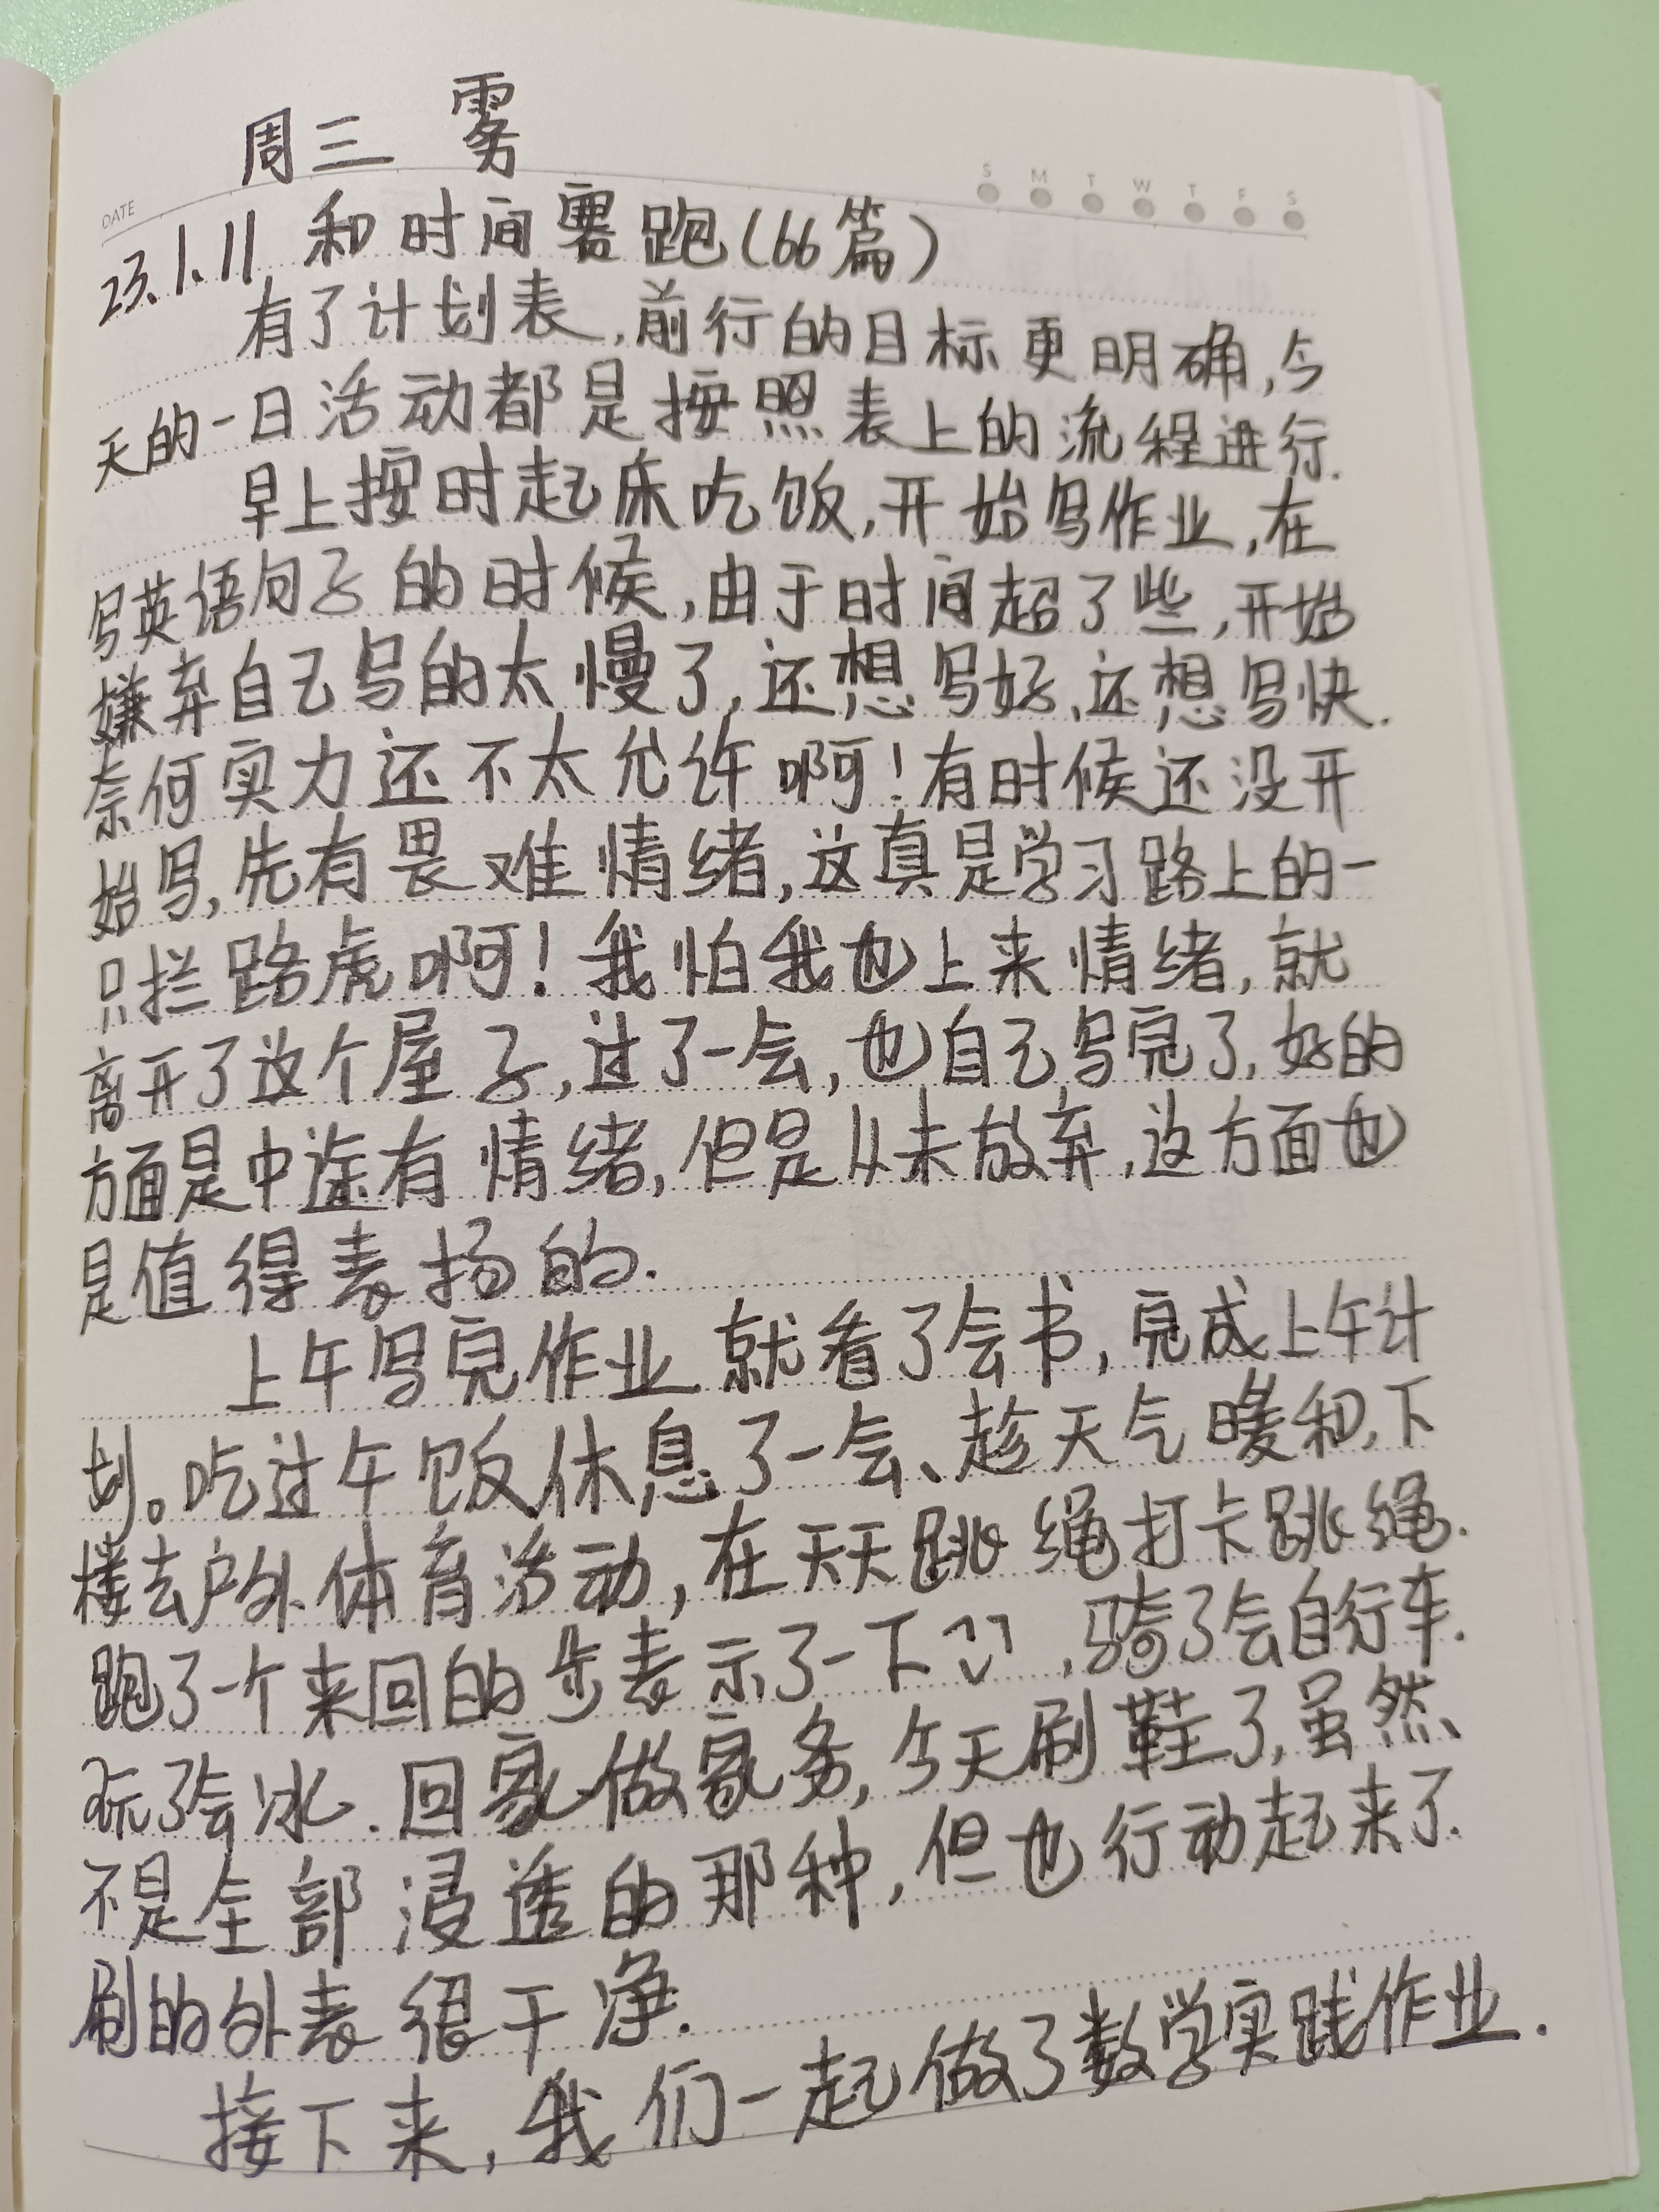 周三 雾
DATE S M T W T F S
23.1.11 和时间赛跑(66篇)
有了计划表,前行的目标更明确,今
天的一日活动都是按照表上的流程进行.
早上按时起床吃饭,开始写作业,在
写英语句子的时候,由于时间超了些,开始
嫌弃自己写的太慢了,还想写好、还想写快.
奈何实力还不太允许啊!有时候还没开
始写,先有畏难情绪,这真是学习路上的一
只拦路虎啊!我怕我也上来情绪,就
离开了这个屋子,过了一会,也自己写完了,好的
方面是中途有情绪,但是从未放弃,这方面也
是值得表扬的.
上午写完作业就看了会书,完成上午计
划。吃过午饭休息了一会、趁天气暖和,下
楼去户外体育活动,在天天跳绳打卡跳绳.
跑了一个来回的步表示了一下,骑了会自行车.
玩了会冰.回家做家务,今天刷鞋了,虽然
不是全部浸透的那种,但也行动起来了.
刷的外表很干净.
接下来,我们一起做了数学实践作业.